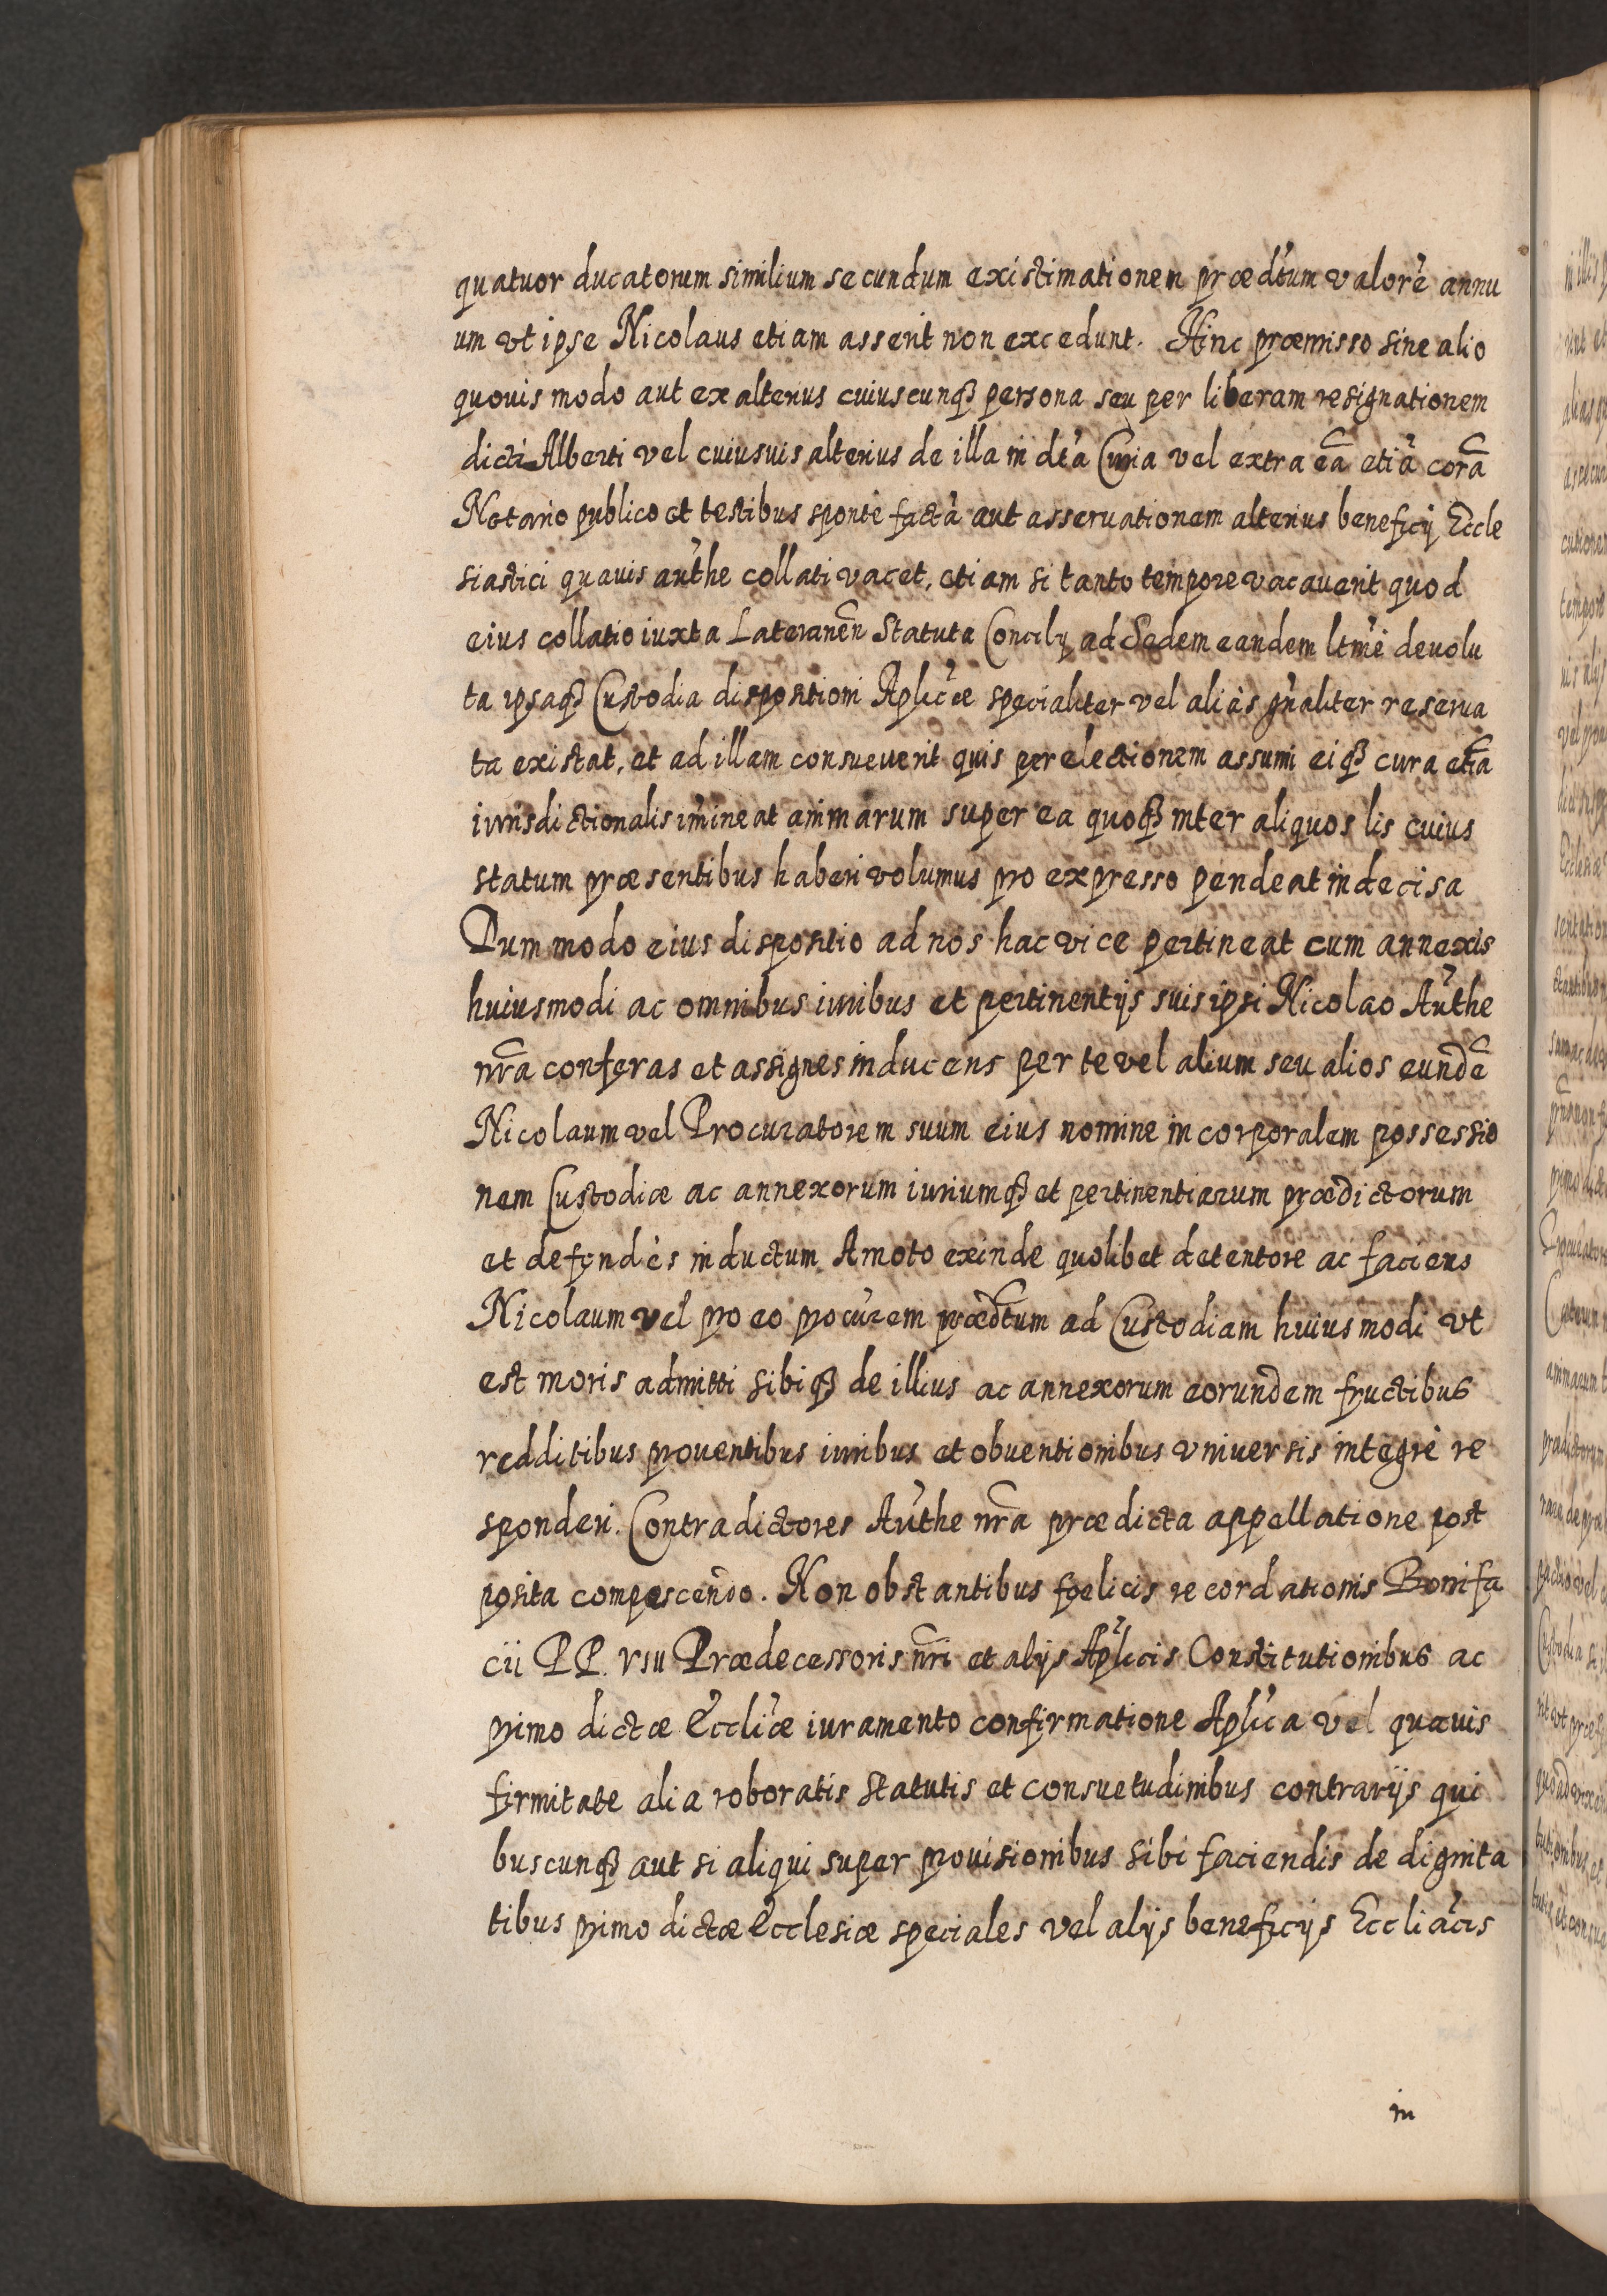 quatuor ducatorum similium secundum existimationem prædtum valorē annu
um vt ipse Nicolaus etiam asserit non excedunt. Hinc præmisso sine alio
quouis modo aut ex alterius cuiuscunqȝ persona seu per liberam resignationem
dicti Alberti vel cuiusuis alterius de illa in dt̃a Curia vel extra eã etiã corã
Notario publico et testibus sponte factã aut asseruationem alterius beneficij Eccle
siastici quauis aũthe collati vacet, etiam si tanto tempore vacauerit quod
eius collatio iuxta Lateranẽn Statuta Concily ad Sedem eandem ltm̃e deuolu
ta ipsaqȝ Custodia dispositioni Aplicæ specialiter vel aliàs gñaliter reserua
ta existat, et ad illam consueuerit quis per electionem assumi eiqȝ cura etĩa
iurisdictionalis im̃ineat animarum super ea quoqȝ inter aliquos lis cuius
statum præsentibus haberi volumus pro expresso pendeat indecisa
Dummodo eius dispositio ad nos hac vice pertineat cum annexis
huiusmodi ac omnibus iuribus et pertinentijs suis ipsi Nicolao Aũthe
nrã conferas et assignes inducens per te vel alium seu alios eundẽ
Nicolaum vel Procuratorem suum eius nomine in corporalem possessio
nem Custodiæ ac annexorum iuriumqȝ et pertinentiarum prædictorum
et defendẽs inductum Amoto exinde quolibet detentore ac faciens
Nicolaum vel pro eo procũrem prædtum ad Custodiam huiusmodi vt
est moris admitti sibiqȝ de illius ac annexorum eorundem fructibus
redditibus prouentibus iuribus et obuentionibus vniuersis integrè re
sponderi. Contradictores Aũthe nrã prædicta appellatione post
posita compescendo. Non obstantibus fœlicis recordationis Bonifa
cii PP. VIII Prædecessoris nr̃i et alijs Aplicis Constitutionibus ac
primo dictæ Eccliæ iuramento confirmatione Aplica vel quauis
firmitate alia roboratis statutis et consuetudinibus contrarijs qui
buscunqȝ aut si aliqui super prouisionibus sibi faciendis de dignita
tibus primo dictæ Ecclesiæ speciales vel alijs beneficijs Eccliãcis
in